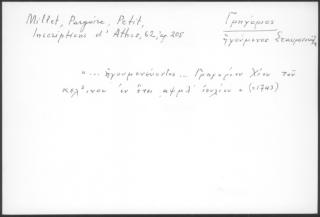 Millet, Pargoire, Petit,
Inscriptions d'Athos, 62, αρ 205
Γρηγόριος
ἡγούμενος Σταυρονικήτα
"... ἡγουμενεύοντος... Γρηγορίου Χίου τοῦ
ἐν ἔτει ,αψμγ' Ἰουλίου" (=1743)